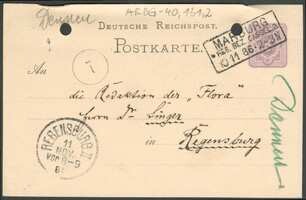 AFBG-40,151,2
DEUTSCHE REICHSPOST.
POSTKARTE.
MARBURG
* REG. BEZ. CASSEL *
10 11 86 2-3N
An
die Redaktion der „Flora"
Herrn Dr. Singer
in
Regensburg
REGENSBURG I
11
NOV.
VOR 8-9
86